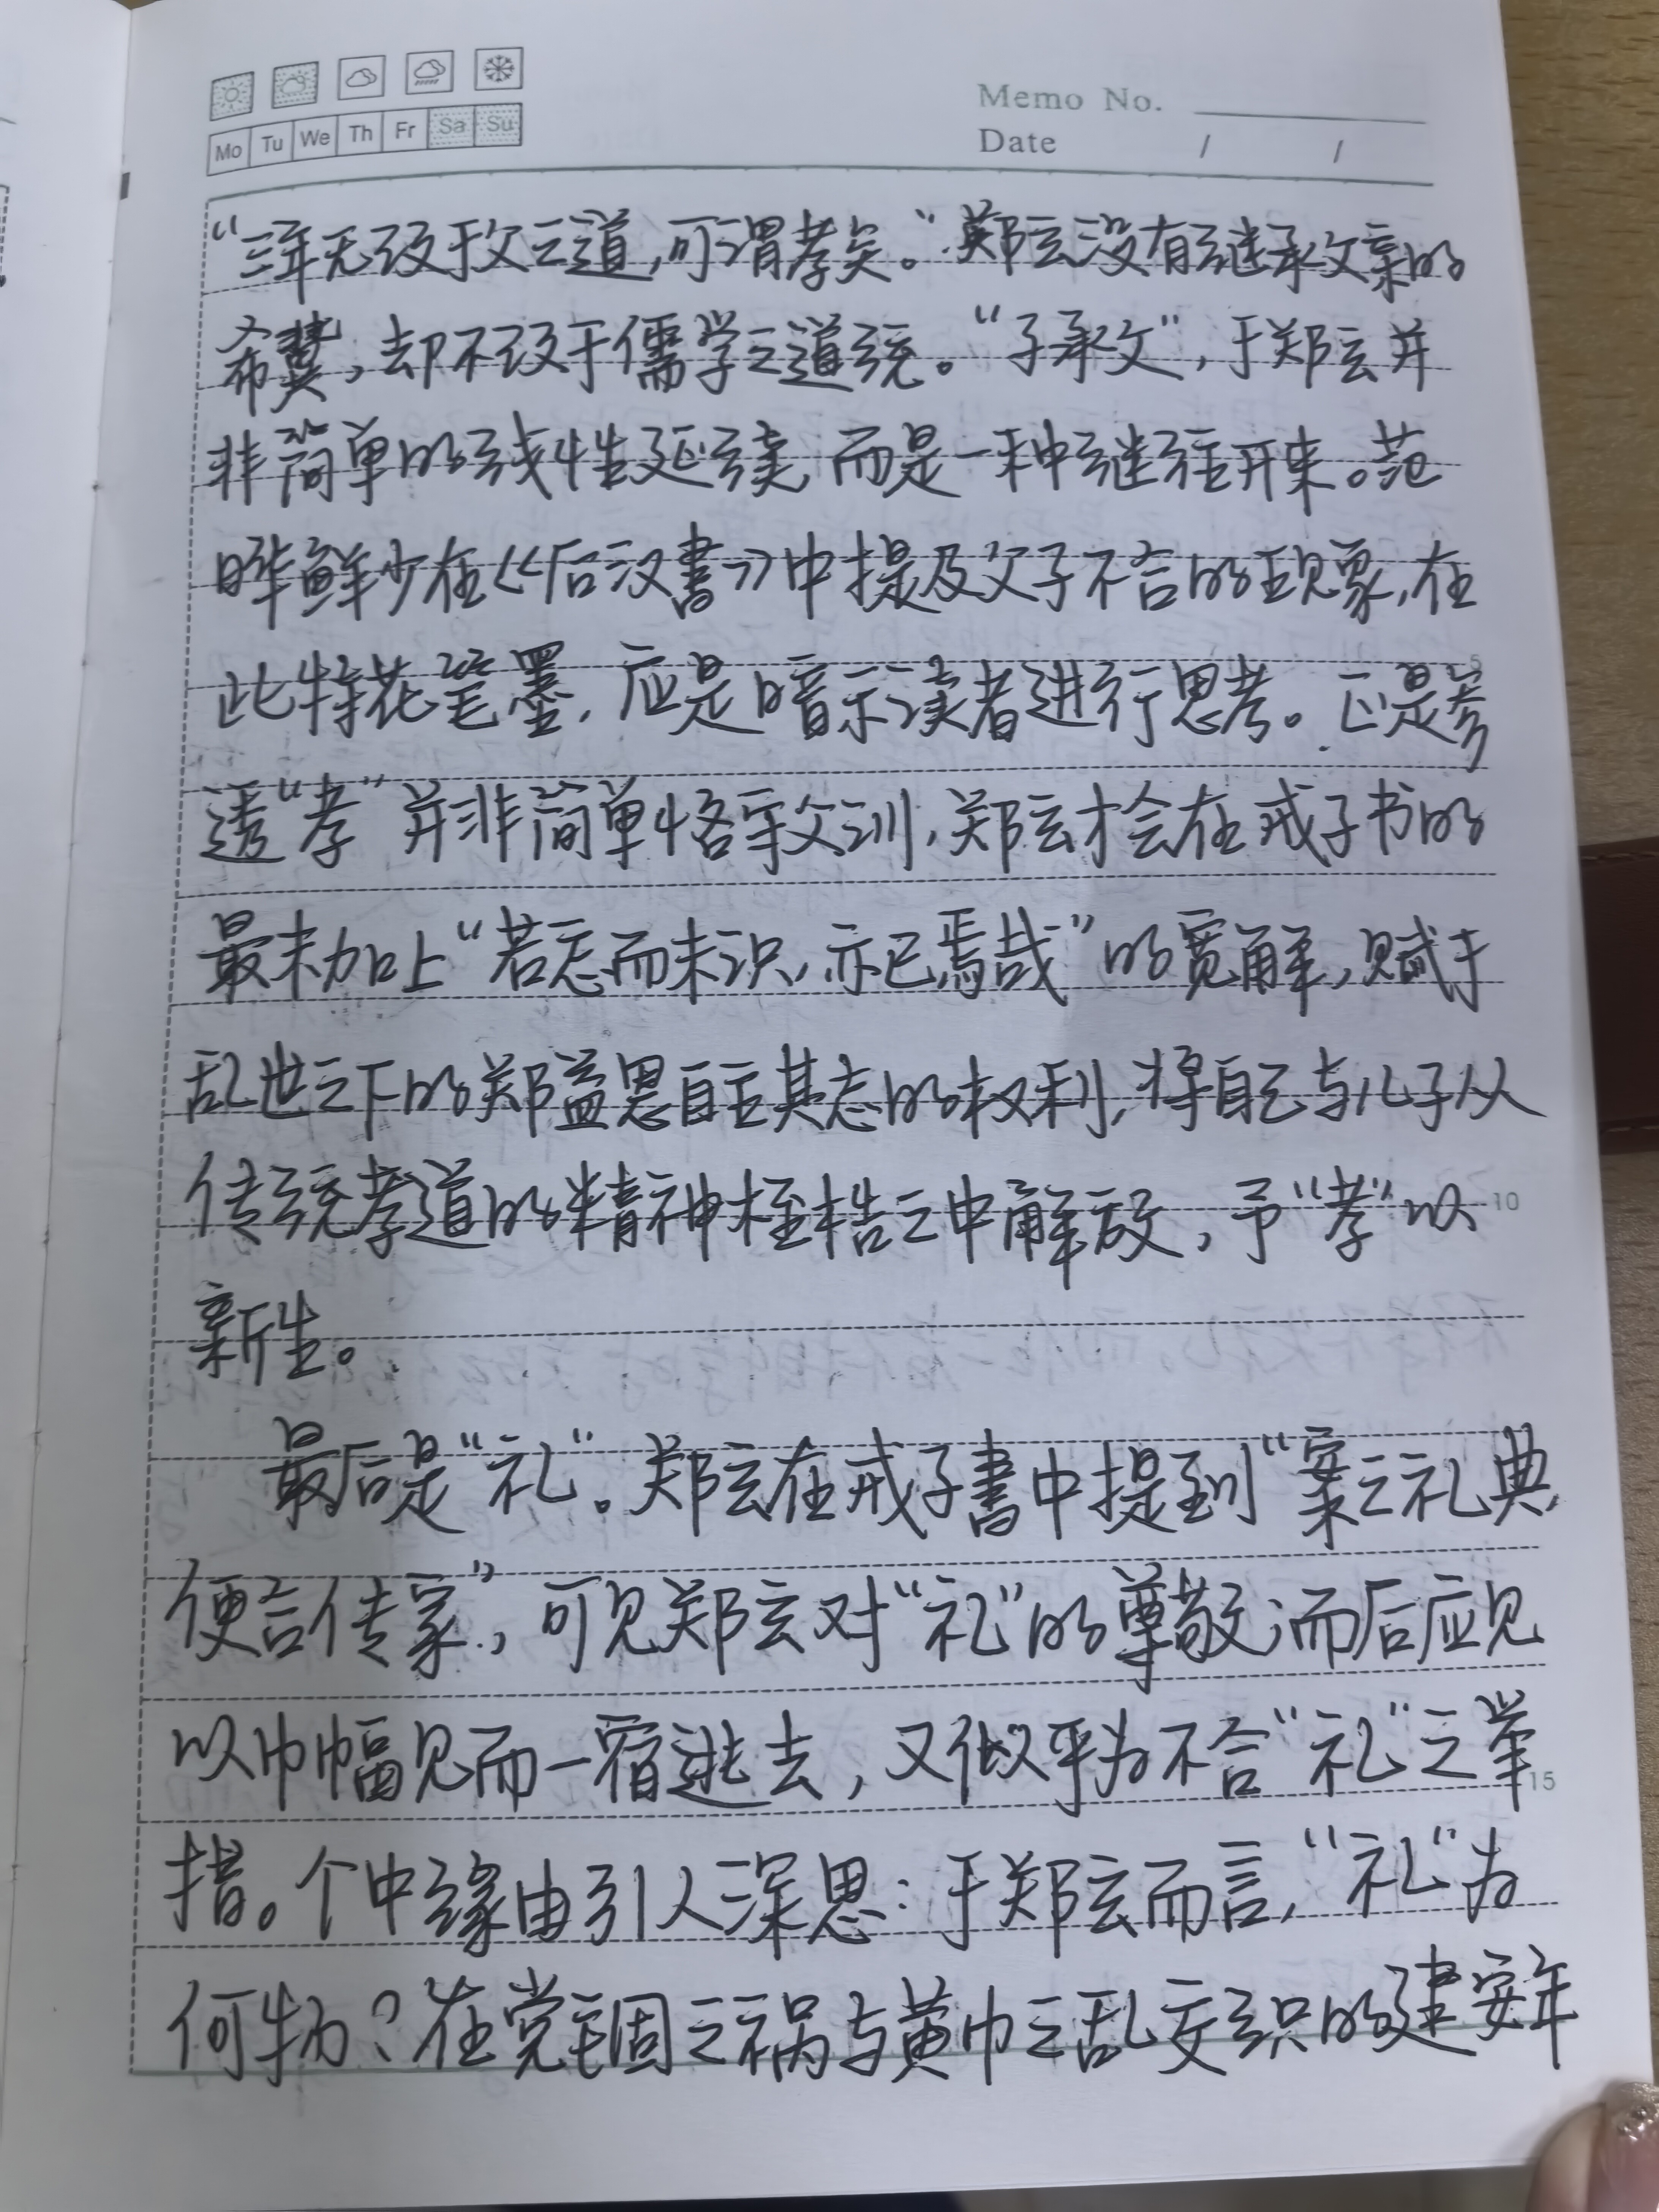 Memo No.
Date / /
Mo Tu We Th Fr Sa Su
“三年无改于父之道,可谓孝矣。”郑玄没有继承父亲的
希冀,却不改于儒学之道统。“子承父”,于郑玄并
非简单的线性延续,而是一种继往开来。范
晔鲜少在《后汉書》中提及父子不合的现象,在
此特花笔墨,应是暗示读者进行思考。正是参
5
透“孝”并非简单恪守父训,郑玄才会在戒子书的
最末加上“若忽而未识,亦已焉哉”的宽解,赋予
乱世之下的郑益恩自主其志的权利,将自己与儿子从
传统孝道的精神桎梏之中解放,予“孝”以
10
新生。
最后是“礼”。郑玄在戒子書中提到“案之礼典,
便合传家”,可见郑玄对“礼”的尊敬;而后应见
以巾幅见而一宿逃去,又似乎为不合“礼”之举
15
措。个中缘由引人深思:于郑玄而言,“礼”为
何物?在党锢之祸与黄巾之乱交织的建安年